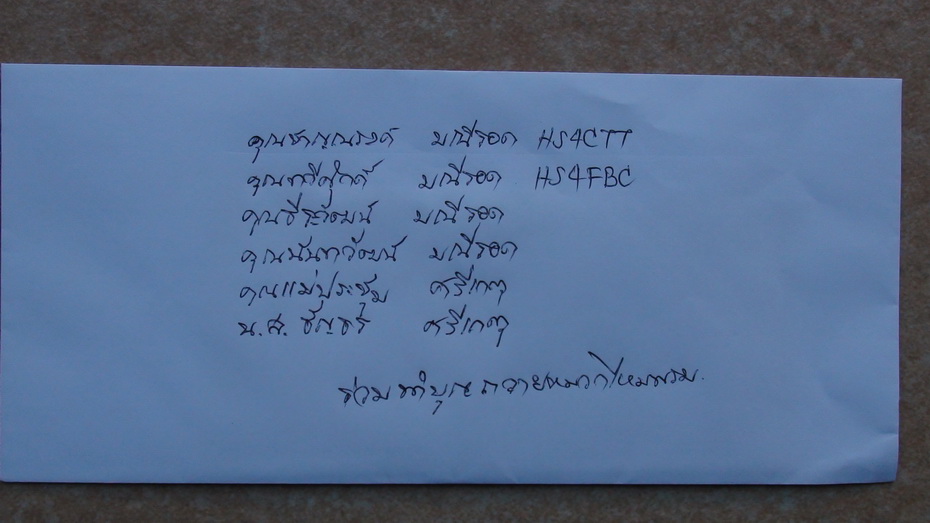 คุณชาญณรงค์ มณีรอด HS4CTT
คุณภักดีศักดิ์ มณีรอด HS4FBC
คุณธีระวัฒน์ มณีรอด
คุณนันทวัฒน์ มณีรอด
คุณแม่ประชุม ศรีเกตุ
น.ส. ธัญชร ศรีเกตุ
ร่วมทำบุญถวายหมวกไหมพรม